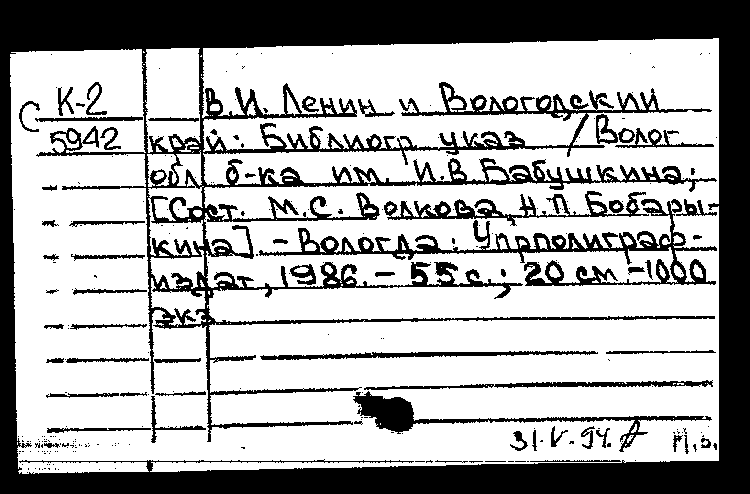 С К-2 В.И. Ленин и Вологодский
5942 край: Библиогр. указ / Волог.
обл. б-ка им. И.В. Бабушкина;
[Сост. М.С. Волкова, Н.П. Бобары-
кина]. - Вологда: Упрполиграф-
издат, 1986. - 55 с.; 20 см. - 1000
экз.
31.V.94.